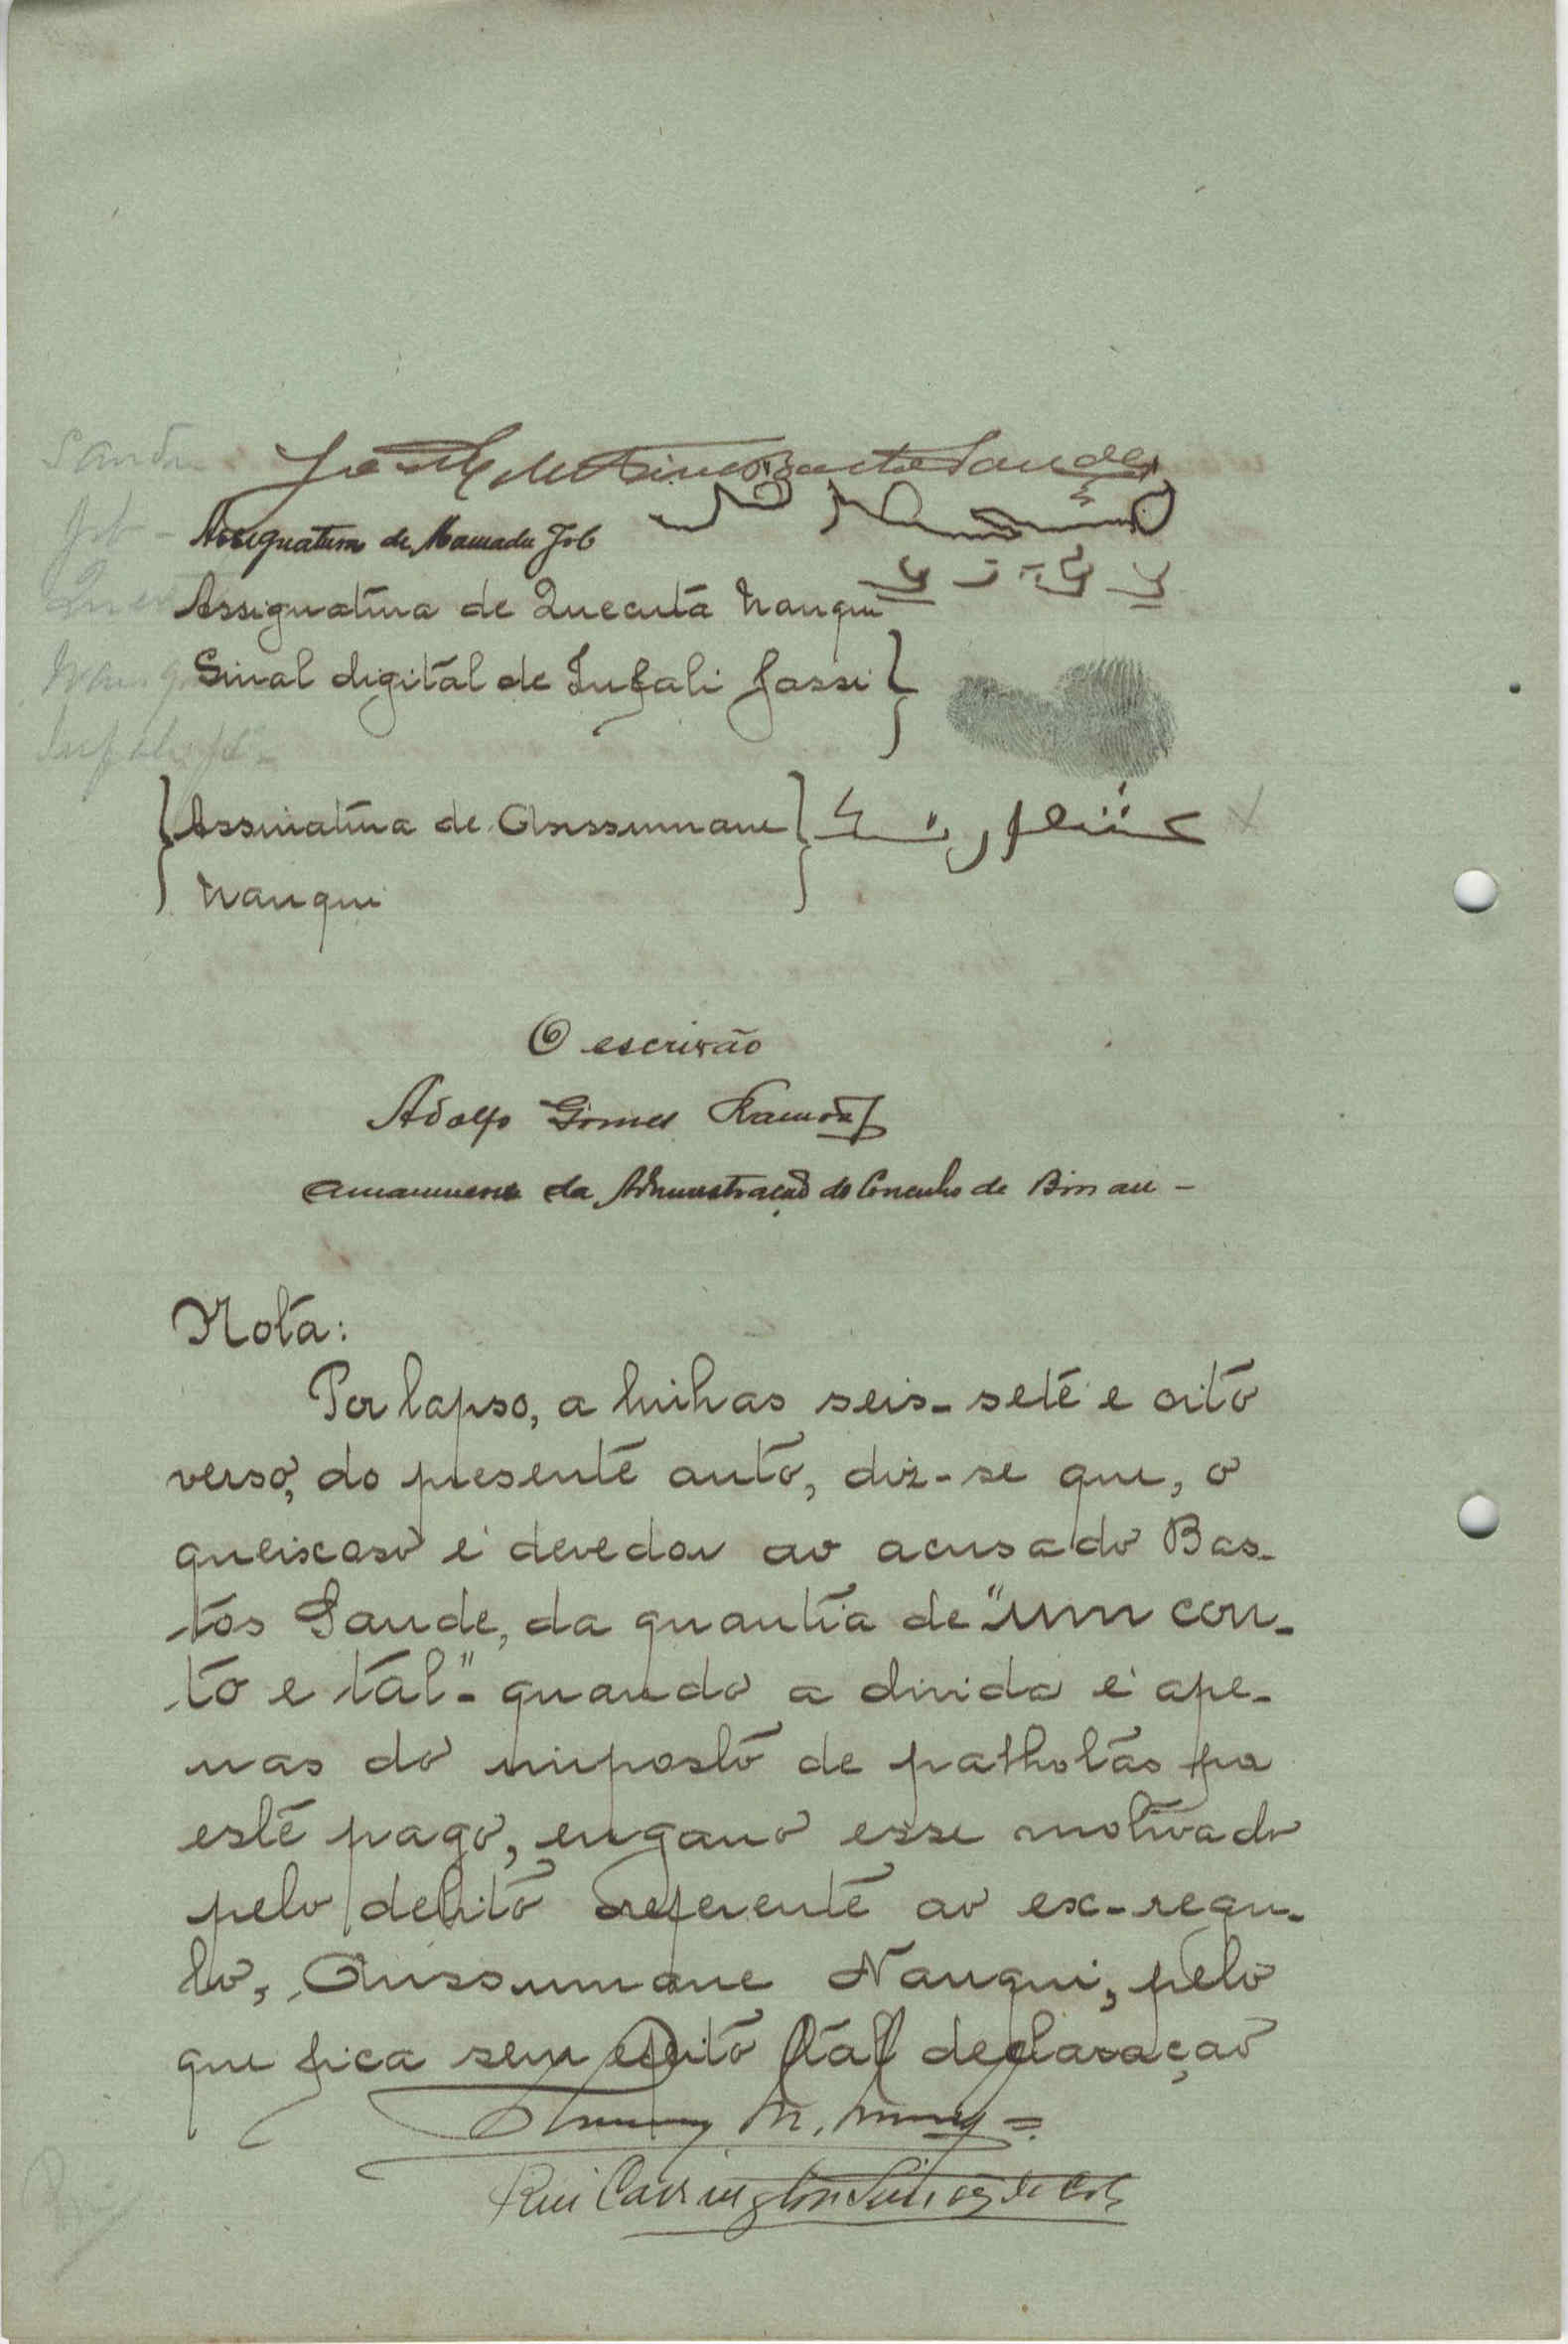 José de Pina Bastos Sande
Assignatura de Mamadu Job
Assignatura de Quecutá Nanqui
Sinal digital de Infali Jassi
Assinatura de Anssumane
Nanqui
O escrivão
Adolfo Gomes Ramos
Amanuense da Administração do Concelho de Bissau -
Nota:
Por lapso, a linhas seis - sete e oito
verso, do presente auto, diz-se que, o
queixoso é devedor ao acusado Bas-
tos Sande, da quantia de "um con-
to e tal" - quando a divida é ape-
nas do imposto de palhotas por
este pago, engano esse motivado
pelo debito referente ao ex-regu-
lo, Anssumane Nanqui, pelo
que fica sem efeito tal declaração
Rui Carrington